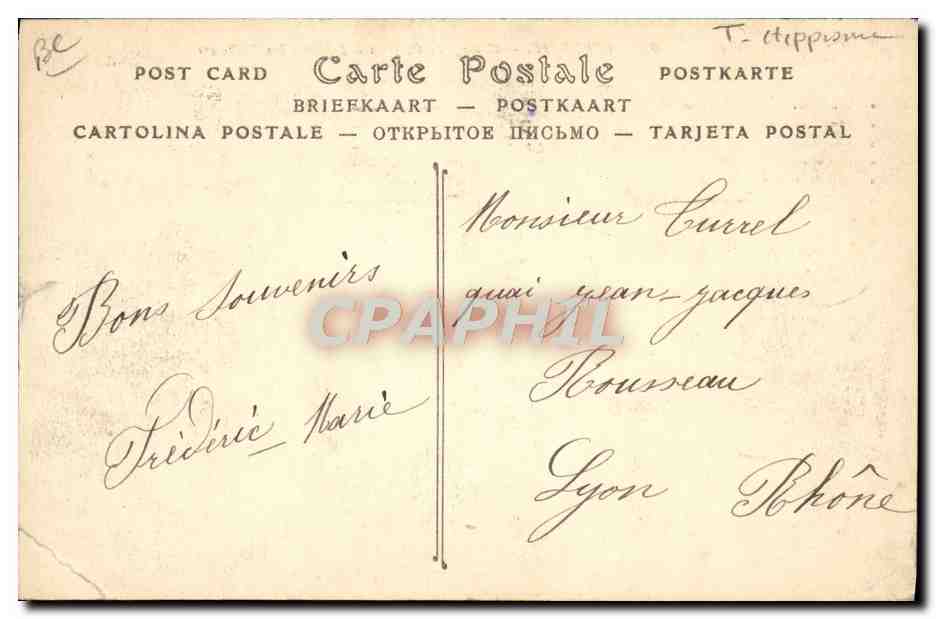 BC
T- Hippisme
POST CARD Carte Postale POSTKARTE
BRIEFKAART — POSTKAART
CARTOLINA POSTALE — ОТКРЫТОЕ ПИСЬМО — TARJETA POSTAL
Bons souvenirs
Frédéric - Marie
Monsieur Currel
quai Jean-Jacques
Rousseau
Lyon Rhône
CPAPHIL